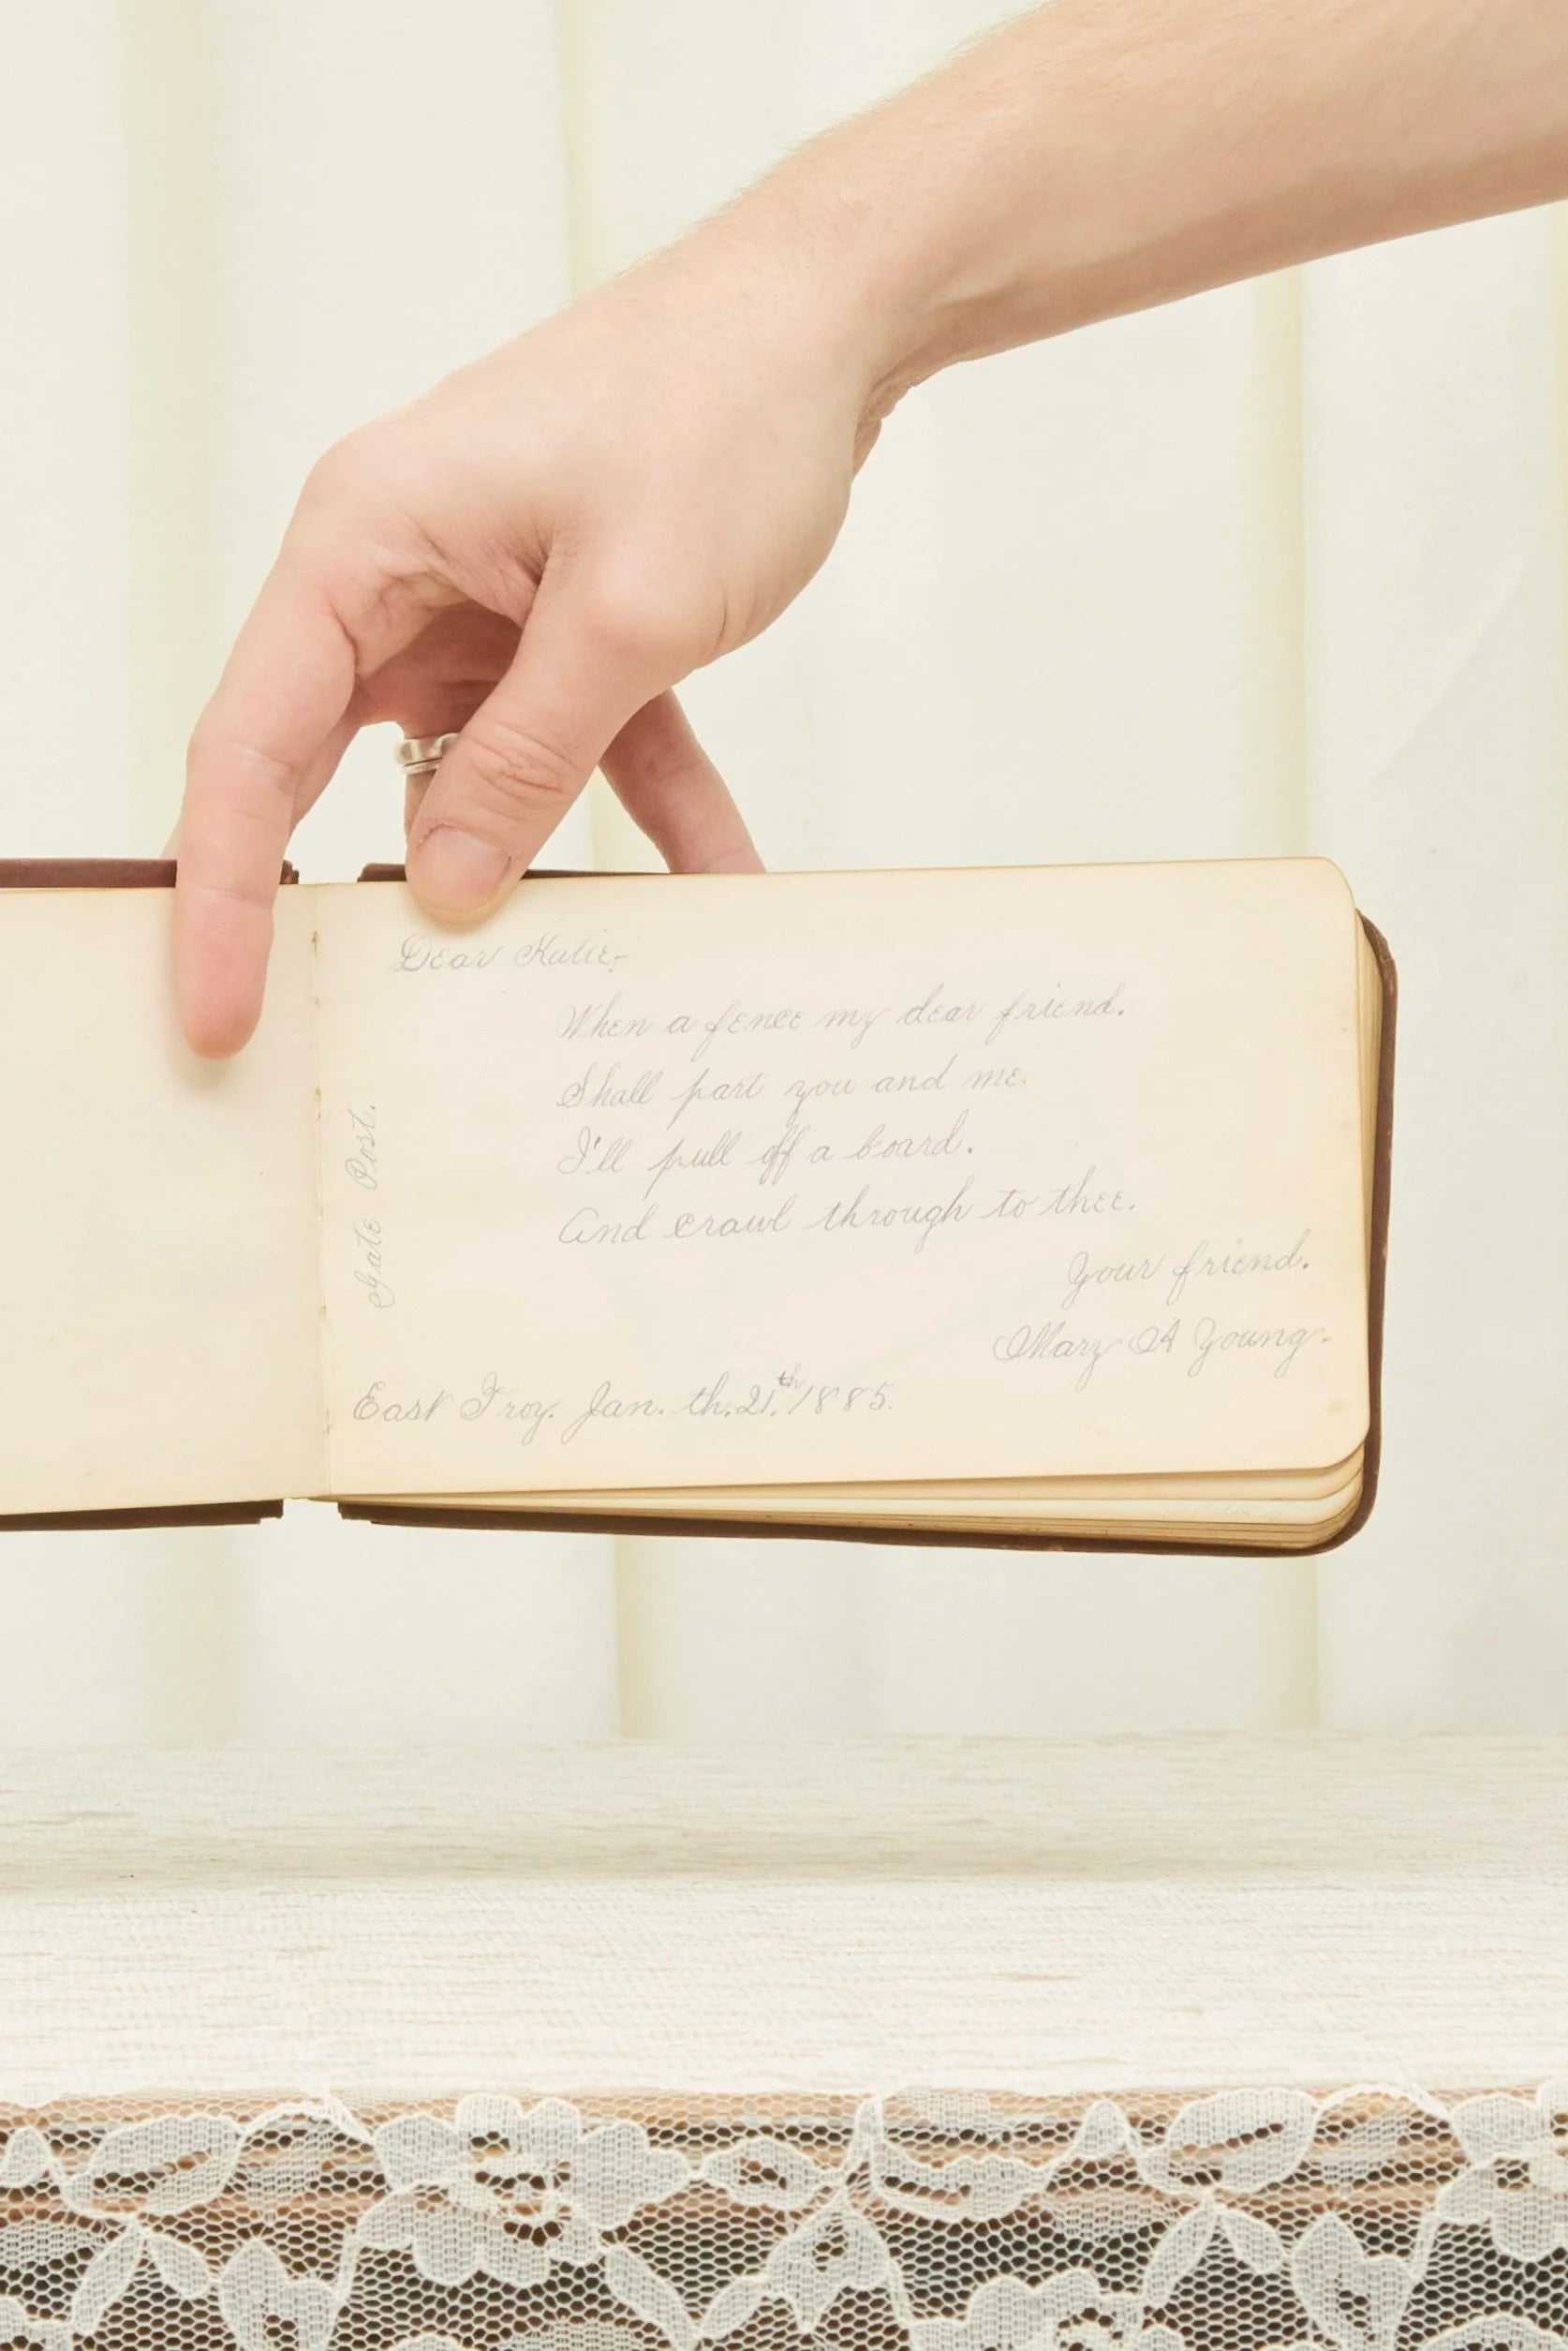 Dear Katie,-
When a fence my dear friend.
Shall part you and me.
I'll pull off a board.
And crawl through to thee.
Your friend.
Mary A Young-
East Troy. Jan. th. 21.th/1885.
Gate Post.